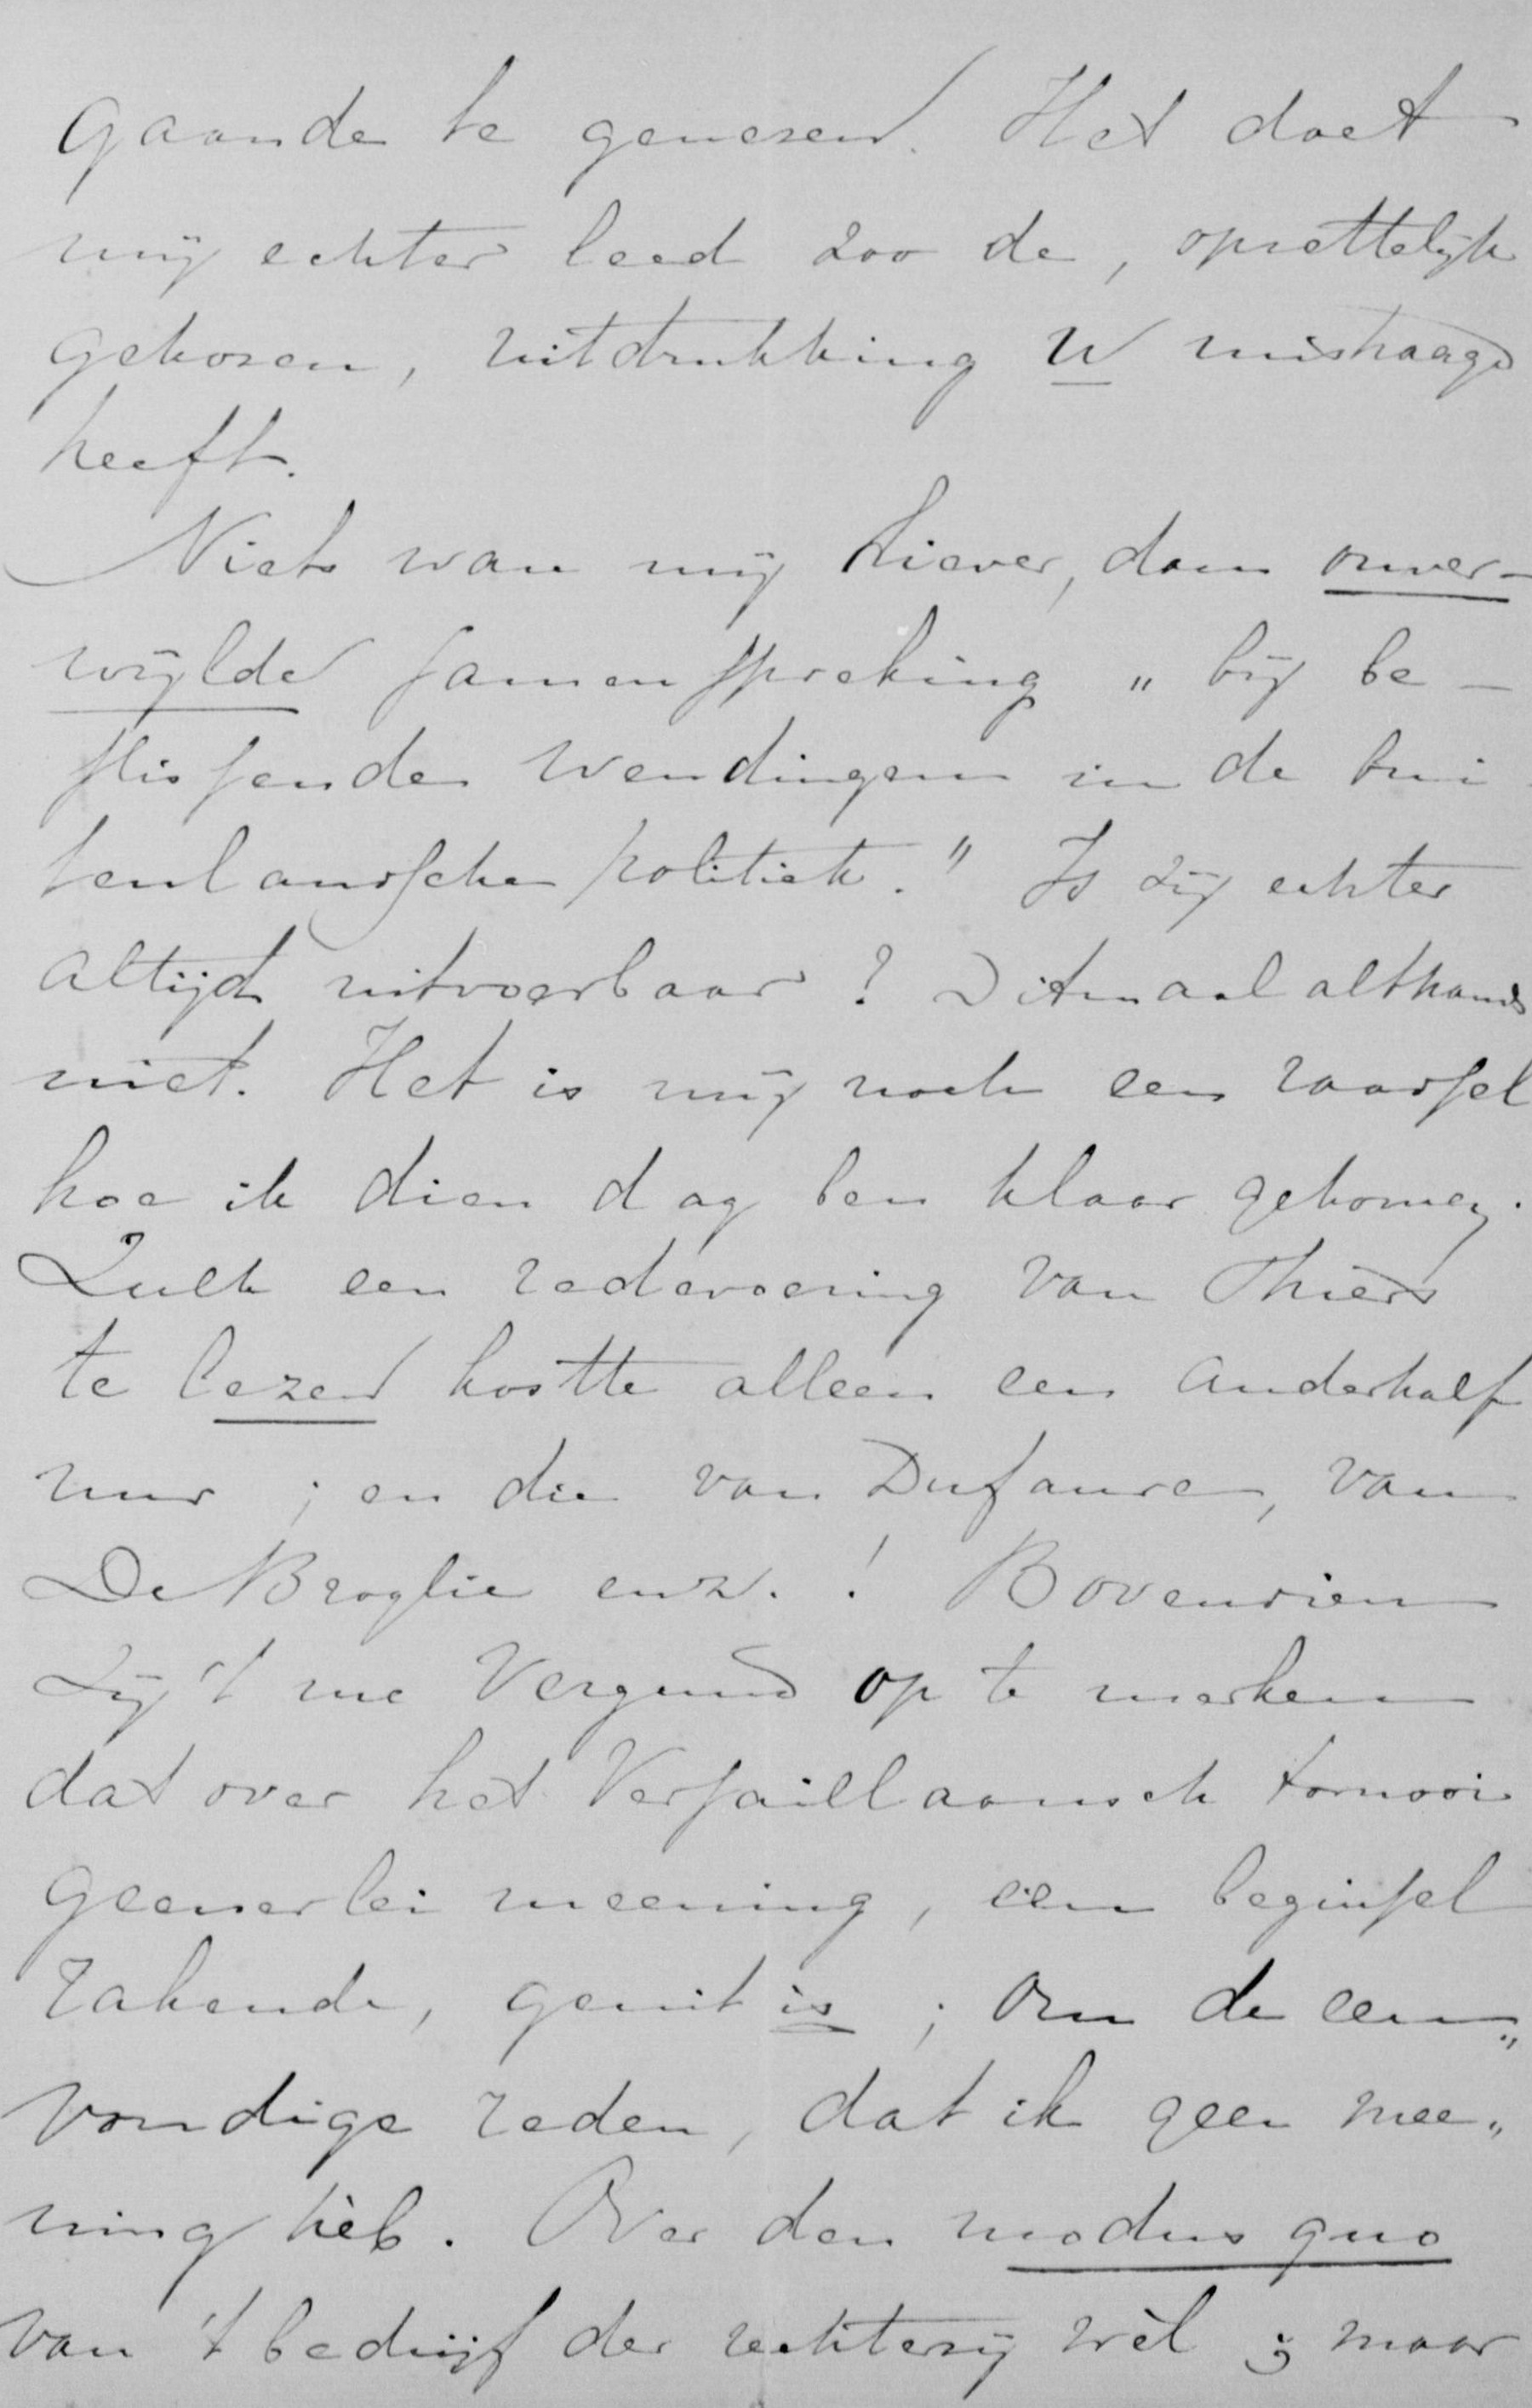 gaande te genezen. Het doet
mij echter leed zoo de, opzettelijk
gekozen, uitdrukking U mishaagd
heeft.
Niets ware mij liever, dan onver-
wijlde samenspreking „bij be-
slissende wendingen in de bui-
tenlandsche politiek." Is zij echter
altijd uitvoerbaar? Ditmaal althans
niet. Het is mij noch een raadsel
hoe ik dien dag ben klaar gekomen.
Zulk een redevoering van Thiers
te lezen kostte alleen een anderhalf
uur; en die van Dufaure, van
De Broglie enz.! Bovendien
zij 't me vergund op te merken
dat over het Versaillaansch tornooi
geenerlei meening, een beginsel
rakende, geuit is; om de een„
voudige reden, dat ik geen mee„
ning hèb. Over den modus quo
van 't bedrijf der rechterzij wèl; maar